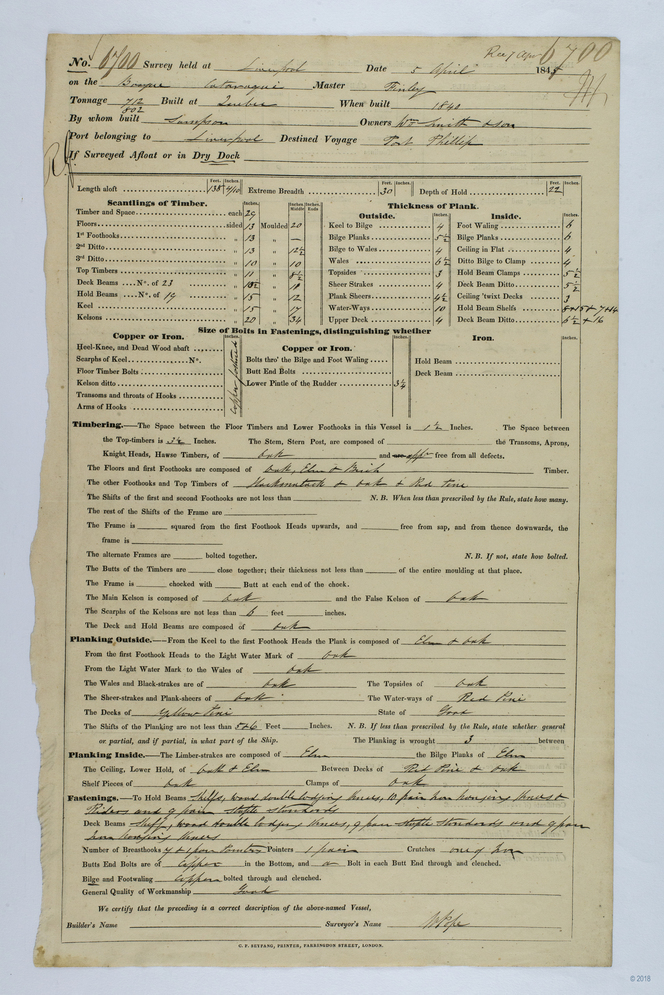 Recd Apr 6700
No. 6700 Survey held at Liverpool Date 5 April 184
on the Barque Cataraqui Master Finlay
Tonnage 712 Built at Quebec When built 1840
802
By whom built Lampson Owners Wm Smith & Son
Port belonging to Liverpool Destined Voyage Port Phillip
If Surveyed Afloat or in Dry Dock
Feet. Inches. Feet. Inches. Feet. Inches.
Length aloft 138 4/10 Extreme Breadth 30 Depth of Hold 22
Scantlings of Timber. Inches. Inches Middle Inches Ends
Timber and Space each 29
Floors sided 13 Moulded 20
1st Foothooks „ 13 „ —
2nd Ditto „ 13 „ 12½
3rd Ditto „ 10 „ 10
Top Timbers „ 11 „ 8½
Deck Beams No. of 23
Hold Beams No. of 19 „ 15 „ 12
Keel „ 15 „ 17
Kelsons „ 20 „ 34
Thickness of Plank.
Outside. Inches.
Keel to Bilge 4
Bilge Planks 5½
Bilge to Wales 4
Wales 6½
Topsides 3
Sheer Strakes 4
Plank Sheers 4½
Water-Ways 10
Upper Deck 4
Inside. Inches.
Foot Waling 6
Bilge Planks 6
Ceiling in Flat 4
Ditto Bilge to Clamp 4
Hold Beam Clamps 5½
Deck Beam Ditto 5½
Ceiling 'twixt Decks 3
Hold Beam Shelfs
Deck Beam Ditto 6½ + 16
Size of Bolts in Fastenings, distinguishing whether
Copper or Iron. Inches.
Heel-Knee, and Dead Wood abaft
Scarphs of Keel No.
Floor Timber Bolts
Kelson ditto
Transoms and throats of Hooks
Arms of Hooks
Copper fastened
Copper or Iron. Inches.
Bolts thro' the Bilge and Foot Waling
Butt End Bolts
Lower Pintle of the Rudder 3¼
Iron. Inches.
Hold Beam
Deck Beam
Timbering.—The Space between the Floor Timbers and Lower Foothooks in this Vessel is 1½ Inches. The Space between
the Top-timbers is 3½ Inches. The Stem, Stern Post, are composed of the Transoms, Aprons,
Knight Heads, Hawse Timbers, of Oak and appr free from all defects.
The Floors and first Foothooks are composed of Oak, Elm & Birch Timber.
The other Foothooks and Top Timbers of Hackmatack & Oak & Red Pine
The Shifts of the first and second Foothooks are not less than N. B. When less than prescribed by the Rule, state how many.
The rest of the Shifts of the Frame are
The Frame is squared from the first Foothook Heads upwards, and free from sap, and from thence downwards, the
frame is
The alternate Frames are bolted together. N. B. If not, state how bolted.
The Butts of the Timbers are close together; their thickness not less than of the entire moulding at that place.
The Frame is chocked with Butt at each end of the chock.
The Main Kelson is composed of Oak and the False Kelson of Oak
The Scarphs of the Kelsons are not less than 6 feet inches.
The Deck and Hold Beams are composed of Oak
Planking Outside.—From the Keel to the first Foothook Heads the Plank is composed of Elm & Oak
From the first Foothook Heads to the Light Water Mark of Oak
From the Light Water Mark to the Wales of Oak
The Wales and Black-strakes are of Oak The Topsides of Oak
The Sheer-strakes and Plank-sheers of Oak The Water-ways of Red Pine
The Decks of Yellow Pine State of Good
The Shifts of the Planking are not less than 5 & 6 Feet Inches. N. B. If less than prescribed by the Rule, state whether general
or partial, and if partial, in what part of the Ship. The Planking is wrought 3 between
Planking Inside.—The Limber-strakes are composed of Elm the Bilge Planks of Elm
The Ceiling, Lower Hold, of Oak & Elm Between Decks of Red Pine & Oak
Shelf Pieces of Oak Clamps of Oak
Fastenings.—To Hold Beams Shelfs, wood double lodging knees, 10 pair iron hanging knees &
Riders and 9 pair staple standards
Deck Beams Shelfs, wood double lodging knees, 9 pair staple standards and 9 pair
Iron hanging knees
Number of Breasthooks 4 & 1 pair Pointers Pointers 1 pair Crutches one of Iron
Butts End Bolts are of Copper in the Bottom, and a Bolt in each Butt End through and clenched.
Bilge and Footwaling Copper bolted through and clenched.
General Quality of Workmanship Good
We certify that the preceding is a correct description of the above-named Vessel,
Builder's Name Surveyor's Name W Pope
C. F. SEYFANG, PRINTER, FARRINGDON STREET, LONDON.
© 2018